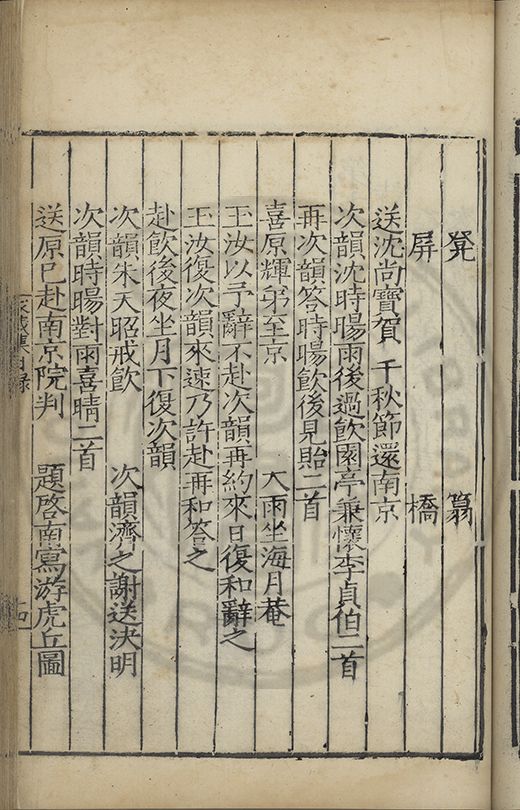 凳
屏　橋
送沈尚寶賀　千秋節還南京
次韻沈時暘雨後過飲園亭兼懷李貞伯二首
再次韻答時暘飲後見貽二首
喜原輝弟至京　大雨坐海月菴
玉汝以予辭不赴次韻再約來日復和辭之
玉汝復次韻來速乃許赴再和答之
赴飲後夜坐月下復次韻
次韻朱天昭戒飲　次韻濟之謝送決明
次韻時暘對雨喜晴二首
送原已赴南京院判　題啓南寫游虎丘圖
家藏集目錄